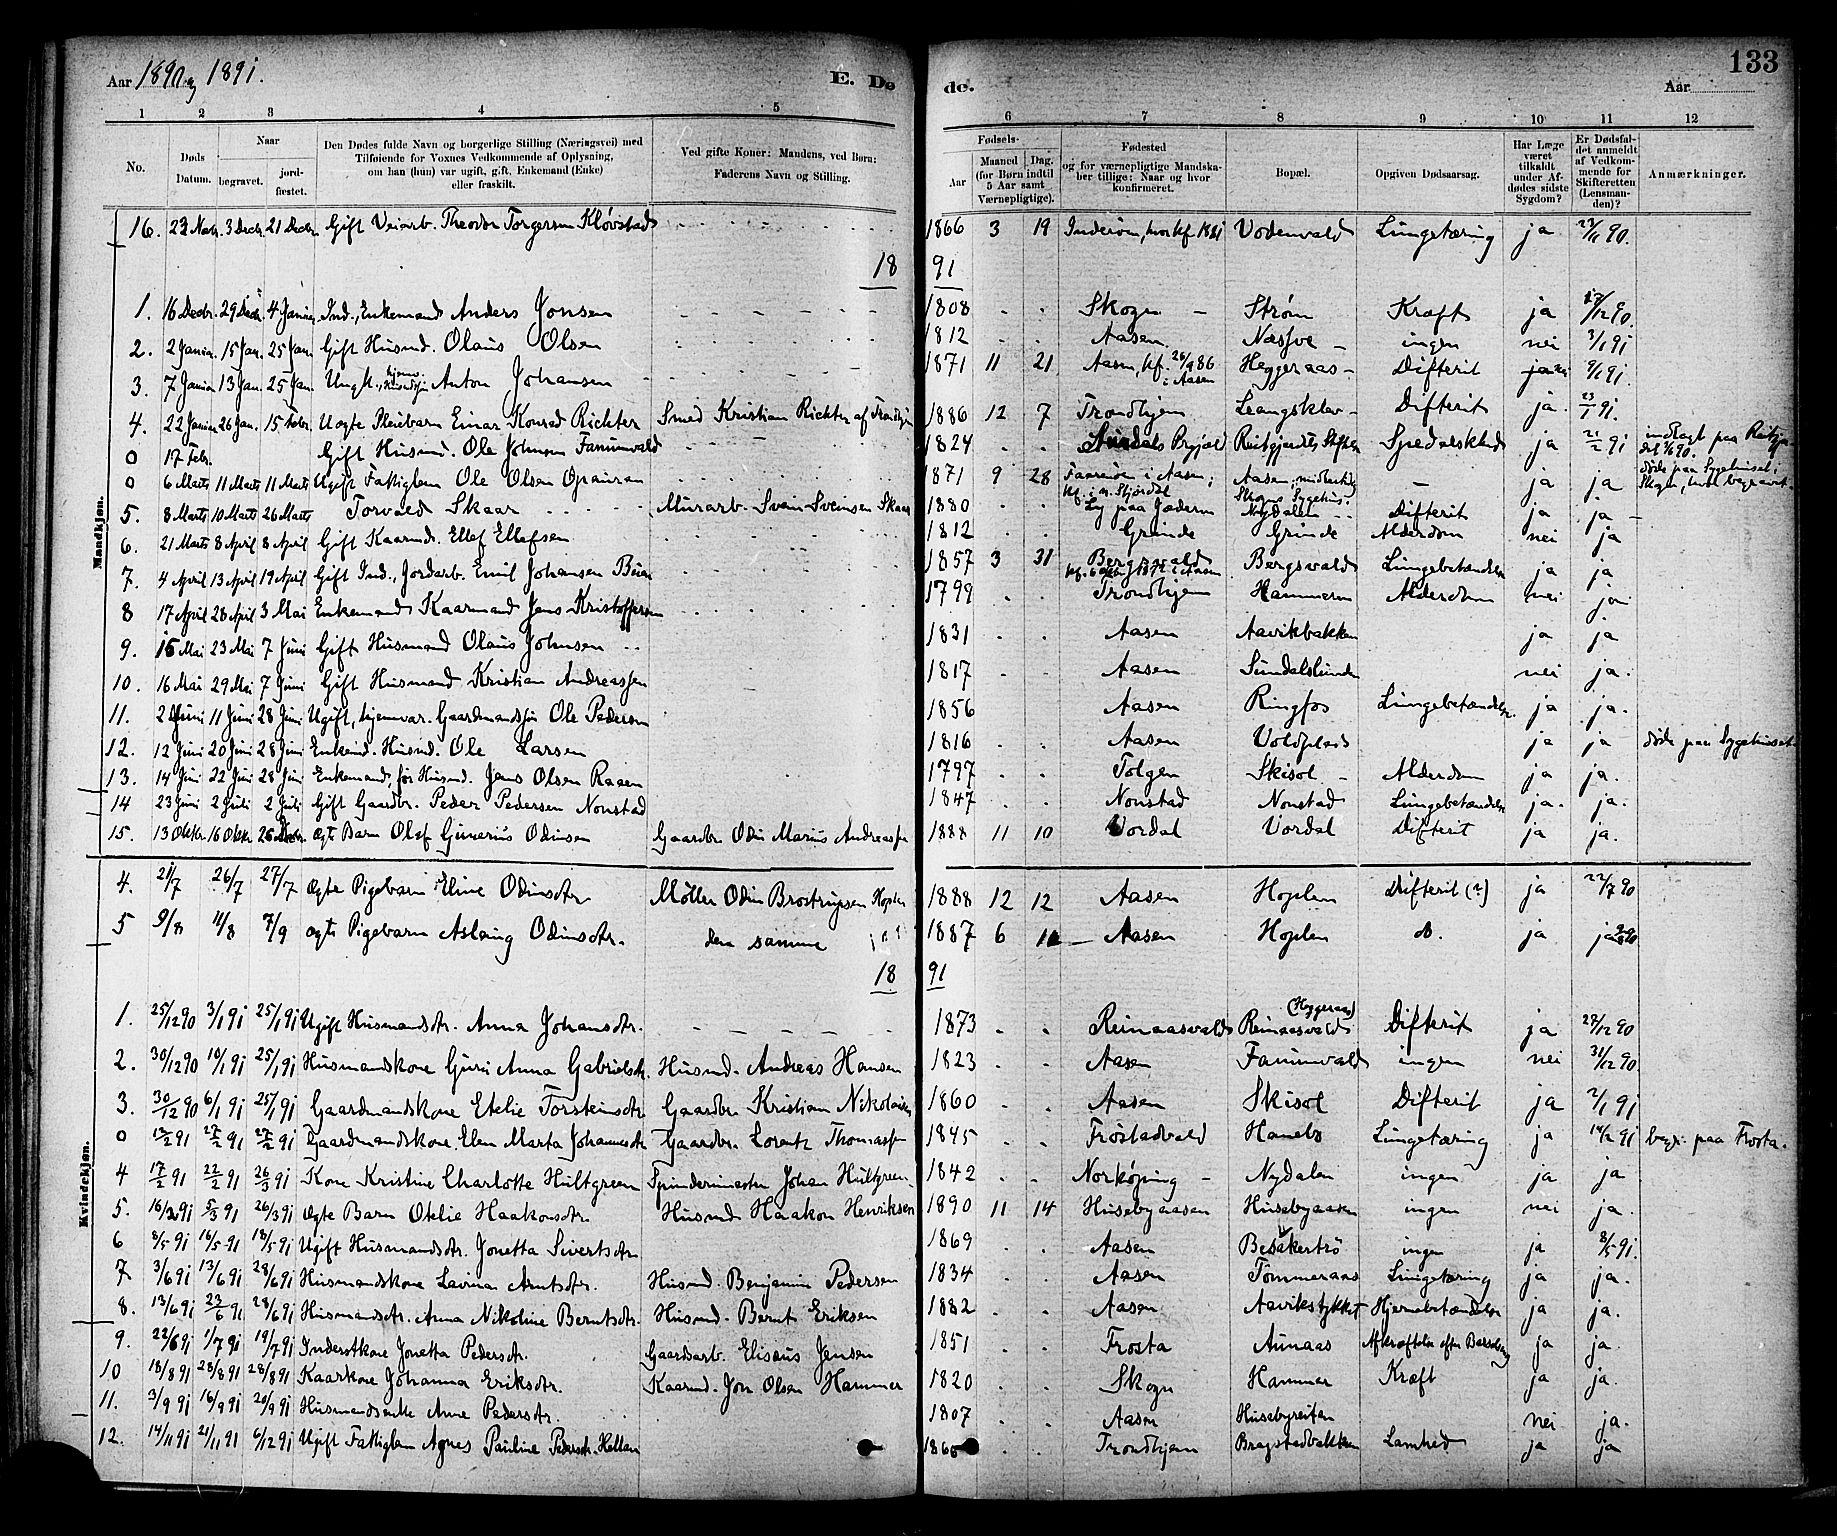 Aar 1890 og 1891.
E. Dø
de.
133
Aar
1 2 3 4 5 6 7 8 9 10 11 12
No.
Døds Datum.
Naar
begravet.
jordfæstet.
Den Dødes fulde Navn og borgerlige Stilling (Næringsvei) med
Tilføiende for Voxnes Vedkommende af Oplysning,
om han (hun) var ugift, gift, Enkemand (Enke)
eller fraskilt.
Ved gifte Koner: Mandens, ved Børn:
Faderens Navn og Stilling.
Fødsels-
Aar
Maaned (for Børn indtil 5 Aar samt Værnepligtige).
Dag.
Fødested
og for værnepligtige Mandskaber tillige: Naar og hvor konfirmeret.
Bopæl.
Opgiven Dødsaarsag.
Har Læge været tilkaldt under Afdødes sidste Sygdom?
Er Dødsfaldet anmeldt af Vedkommende for Skifteretten (Lensmanden)?
Anmærkninger.
Mandkjøn.
16. 22 Novbr. 3 Decbr. 21 Decbr. Gift Veiarb. Theodor Torgersen Kløvstad 1866 3 19 Inderøen, hvor kf. 1881 Vodenvald Lungetæring ja 29/11 90.
18 91
1. 16 Decbr. 29 Decbr. 4 Januar Ind., Enkemand Anders Jonsen 1808 Skogn Strøm Kræft ja 17/12 90.
2. 2 Januar 15 Jan. 25 Jan. Gift Husmd. Olaus Olsen 1812 Aasen Næsjve ingen nei 3/1 91
3. 7 Januar 13 Jan. 25 Jan. Ungk., hjemv. Husmdsøn Anton Johansen 1871 11 21 Aasen, kf. 26/9 86 i Aasen Heggeraas Difterit ja nei 9/1 91.
4. 22 Januar 26 Jan. 15 Febr. Uægte Pleiebarn Einar Konrad Richter Smed Kristian Richter af Trondhjem 1886 12 7 Trondhjem Leangsklev Difterit ja. 23/1 91.
0 17 Febr. Gift Husmd. Ole Johnsen Fanumvald 1824 Reitgjerdets Stiftelse Spedalskhed ja 21/2 91 indlagt paa Reitgjerdet
0 6 Marts 11 Marts 11 Marts Ugift Fattiglem Ole Olsen Opauran 1871 9 28 Faareøen i Aasen; kf. i n. Stjørdal Aasen, midlertidig Skogns Sygehus. — ja ja døde paa Sygehuset i Skogn, hvor begravet.
5. 8 Marts 10 Marts 26 Marts Torvald Skaar Murarb. Svein Sveinsen Skaar 1880 Ly paa Jæderen Nydalen Difterit ja ja
6. 21 Marts 8 April 8 April Gift Kaarmd. Ellef Ellefsen 1812 Grinde Grinde Alderdom nei ja
7. 4 April 13 April 19 April Gift Ind., Jordarb. Emil Johansen Buan 1857 3 31 Bergsvald kf. i Aasen Bergsvald Lungebetændelse ja ja
8 17 April 28 April 3 Mai Enkemand Kaarmand Jens Kristoffersen 1799 Trondhjem Hammeren Alderdom nei ja
9. 15 Mai 23 Mai 7 Juni Gift Husmand Olaus Johnsen 1831 Aasen Aavikbakken ja ja
10. 16 Mai 29 Mai 7 Juni Gift Husmand Kristian Andreassen 1817 Aasen Sundalslunden nei ja.
11. 2 Juni 11 Juni 28 Juni Ugift, hjemvær. Gaardmandssøn Ole Pedersen 1856 Aasen Ringfos Lungebetændelse. ja ja.
12. 12 Juni 20 Juni 28 Juni Enkemd. Husmd. Ole Larsen 1816 Aasen Voldplads ja ja døde paa Sygehuset.
13. 14 Juni 22 Juni 28 Juni Enkemand, før Husmd. Jens Olsen Raaen 1797 Tolgen Skisol Alderdom ja ja.
14 23 Juni 2 Juli 2 Juli Gift Gaardbr. Peder Pedersen Nonstad 1847 Nonstad Nonstad Lungebetændelse ja. ja.
15. 13 Oktbr. 16 Oktbr. 26 Decbr. ægte Barn Olef Gunerius Odinsen Gaardbr. Odin Marius Andreassen 1888 11 10 Vordal Vordal Difterit ja ja.
Kvindekjøn.
4. 21/7 26/7 27/7 ægte Pigebarn Eline Odinsdtr. Møller Odin Brostrupsen Hoplen 1888 12 12 Aasen Hoplen Difterit (?) ja 22/7 90
5 9/8 11/8 7/9 ægte Pigebarn Aslaug Odinsdtr. den samme 1887 6 Aasen Hoplen do. ja ja
18 91
1. 25/12 90 3/1 91 25/1 91 Ugift Husmandsdtr. Anna Johansdtr. 1873 Reinaasvald (Heggeraas) Reinaasvald Difterit ja 27/12 90
2. 30/12 90 10/1 91 25/1 91 Husmandskone Guru Anna Gabrielsdtr. Husmd. Andreas Hansen 1823 Aasen Fanumvald ingen nei 31/12 90
3. 30/12 90 6/1 91 25/1 91 Gaardmandskone Etelie Torsteinsdtr. Gaardbr. Kristian Nikolaisen 1860 Aasen Skisol Difterit ja 2/1 91
0 13/2 91 27/2 91 27/2 91 Gaardmandskone Elen Marta Johannesdtr. Gaardbr. Lorentz Thomassen 1845 Frostadvald Hanebo Lungetæring ja 14/2 91 begr. paa Frosta.
4 17/2 91 22/2 91 26/3 91 Kone Kristine Charlotte Hultgreen Spindermester Johan Hultgreen 1842 Norkøping Nydalen ingen ja ja
5. 16/2 91 5/3 91 26/3 91 ægte Barn Otelie Haakonsdtr. Husmd. Haakon Henriksen 1890 11 14 Husebyaasen Husebyaasen ingen nei ja.
6 8/5 91 16/5 91 18/5 91 Ugift Husmandsdtr. Jonetta Sivertsdtr. 1869 Aasen Besakertrø ingen ja 8/5 91.
7 3/6 91 13/6 91 28/6 91 Husmandskone Lavina Arntsdtr. Husmd. Benjamin Pedersen 1834 Aasen Tømmeraas Lungetæring ja ja.
8. 13/6 91 23/6 91 28/6 91 Husmandsdtr. Anna Nikoline Berntsdtr. Husmd. Bernt Eriksen 1882 Aasen Aavikstykket Hjernebetændelse ja ja.
9. 22/6 91 1/7 91 19/7 91 Inderstkone Jonetta Pedersdtr. Gaardsarb. Elisæus Jensen 1851 Frosta Aunaas Afkræftelse efter Barselseng ja ja.
10 18/8 91 28/8 91 28/8 91 Kaarkone Johanna Eriksdtr. Kaarmd. Jon Olsen Hammer 1820 Skogn Hammer Kræft ja ja.
11. 3/9 91 16/9 91 20/9 91 Husmandsenke Anne Pedersdtr. 1807 Aasen Husebyreiten nei ja.
12. 14/11 91 21/11 91 6/12 91 Ugift Fattiglem Agnes Pauline Pedersdtr. Hellan Trondhjem Bragstadbakken Lamhed ja ja